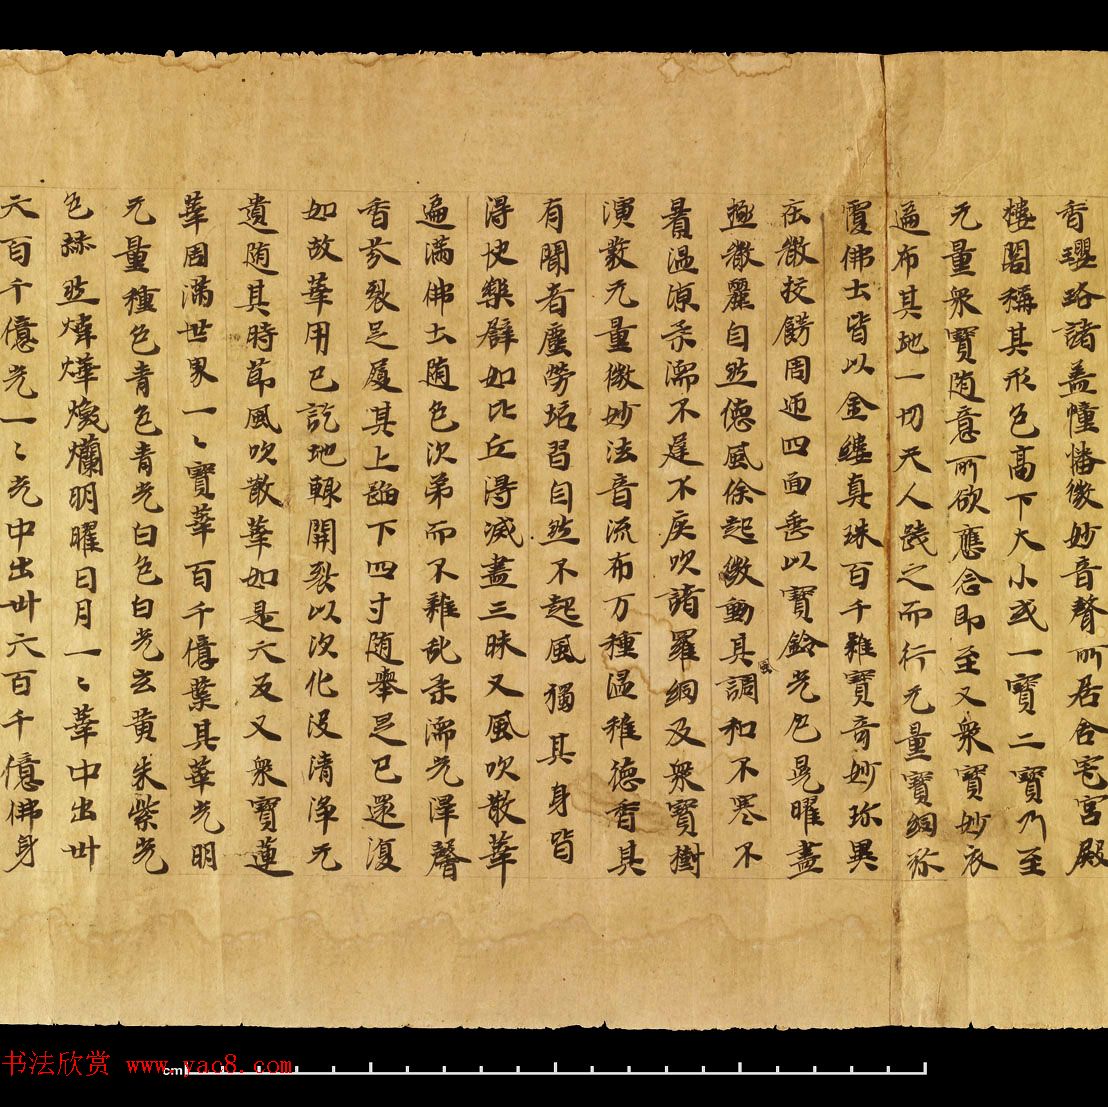 香璎珞諸盖幢幡微妙音聲所居舍宅宮殿
樓閣稱其形色高下大小或一寶二寶乃至
无量衆寶随意所欲應念即至又衆寶妙衣
遍布其地一切天人踐之而行无量寶網弥
覆佛土皆以金縷真珠百千雜寶奇妙珎異
莊嚴挍餝周迊四面垂以寶鈴光色晃曜盡
極嚴麗自然德風徐起微動其調和不寒不
風
暑温凉柔濡不遟不疾吹諸羅網及衆寶樹
演敷无量微妙法音流布万種温雅德香其
有聞者塵勞垢習自然不起風獨其身皆
得快樂譬如比丘得滅盡三昧又風吹散華
遍滿佛土随色次弟而不雜乱柔濡光澤馨
香芬裂足履其上蹈下四寸随舉足已還復
如故華用已訖地輙開裂以次化没清淨无
遺随其時節風吹散華如是六反又衆寶蓮
華周滿世界一〻寶華百千億葉其華光明
无量種色青色青光白色白光玄黄朱紫光
色赫然煒燁煥爛明曜日月一〻華中出卅
六百千億光一〻光中出卅六百千億佛身
书法欣赏 www.yac8.com
cm